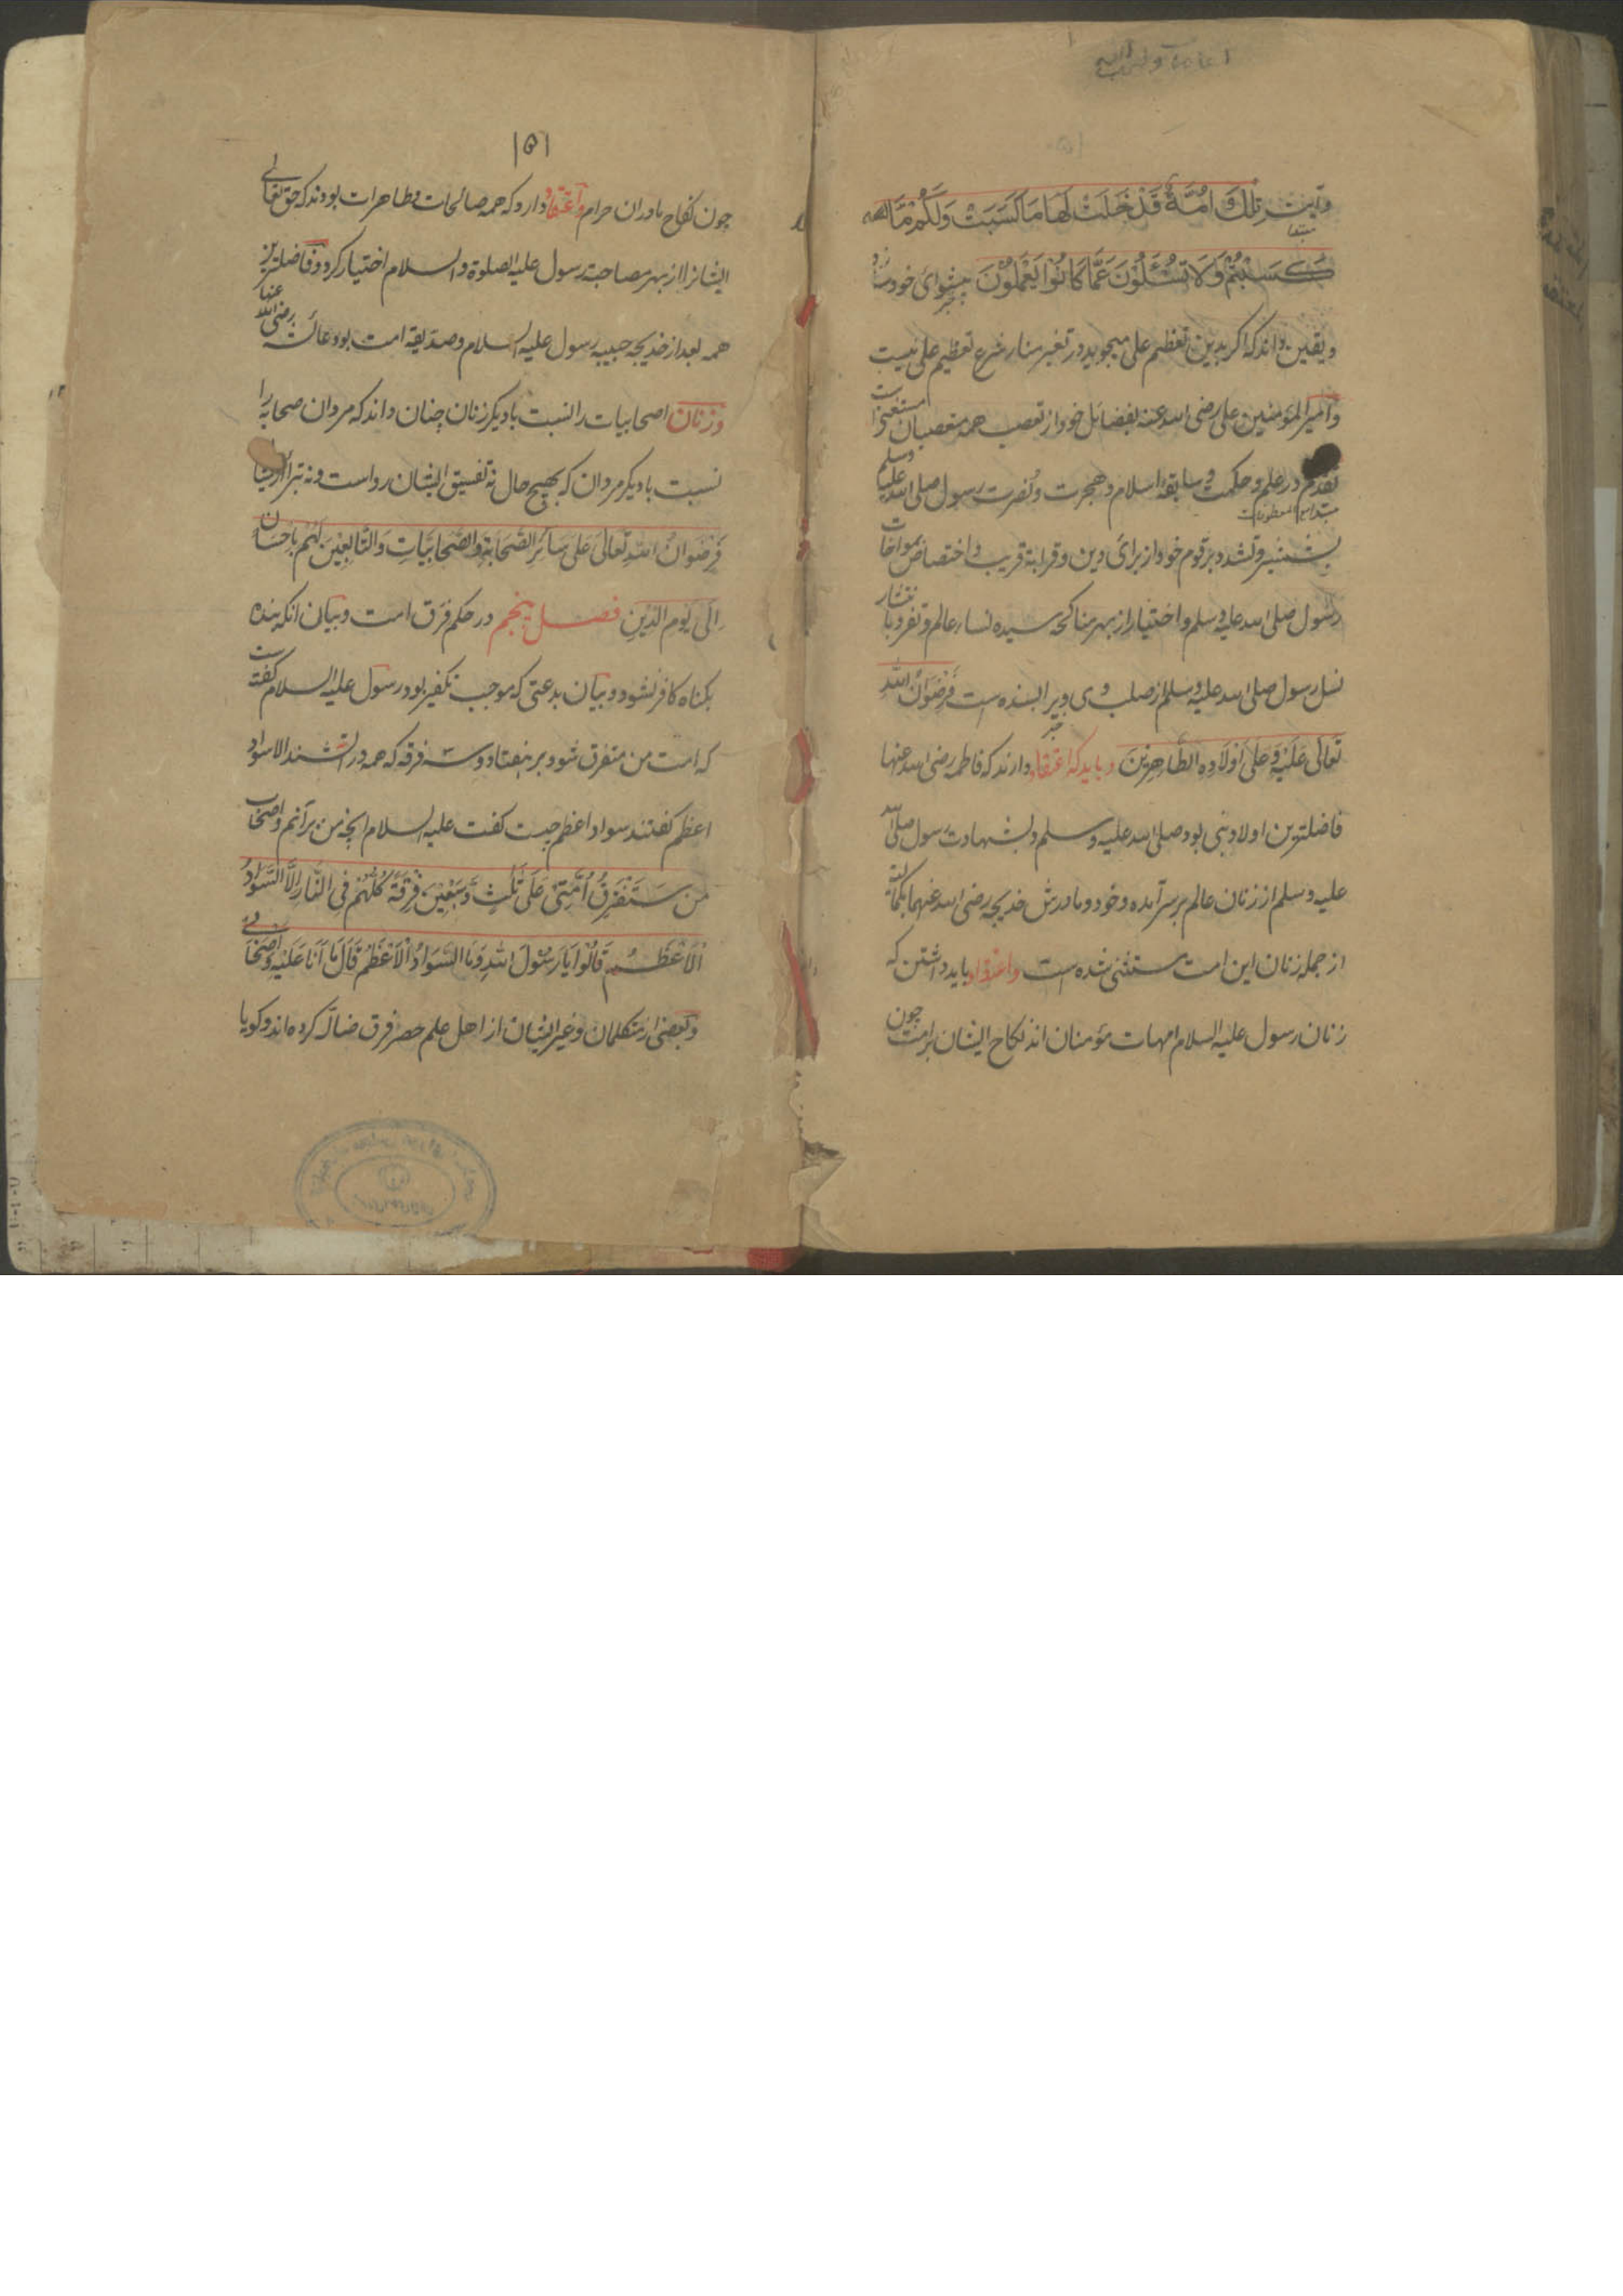 وآیت تِلْكَ اُمَّةٌ قَدْ خَلَتْ لَهَا مَا كَسَبَتْ وَلَكُمْ مَّا
كَسَبْتُمْ وَلَا تُسْئَلُوْنَ عَمَّا كَانُوْا يَعْمَلُوْنَ پیشوای خود
ویقین داند که اکر بدین تعظیم علی میجوید در تغیر منار شرع تعظیم علی نیست
وامیر المؤمنین علی رضی الله عنه بفضائل خود از تعصب همه متعصبان مستغنی است
تقدم در علم وحکمت وسابقهٔ اسلام وهجرت ونصرت رسول صلی الله علیه وسلم
بشمشیر وتشدد بر قوم خود از برای دین وقرابة قریب واختصاص بمواخات
رسول صلی الله علیه وسلم واختیار از بهر مناکحه سیده نساء عالم وتفرد بانتشار
نسل رسول صلی الله علیه وسلم از صلب وی ویرا بسنده است فَرِضْوَانُ اللّٰهِ
تَعَالٰی عَلَیْهِ وَعَلٰی اَوْلَادِهِ الطَّاهِرِیْنَ وباید که اعتقاد دارند که فاطمه رضی الله عنها
فاضلترین اولاد نبی بود صلی الله علیه وسلم وبشهادت رسول صلی الله
علیه وسلم از زنان عالم بر سر آمده وخود ومادرش خدیجه رضی الله عنهما
از جمله زنان این امت مستثنی شده است واعتقاد باید داشتن که
زنان رسول علیه السلام امهات مؤمنان اند نکاح ایشان بر امت چون
۱۵۱
چون نکاح مادران حرام واعتقاد دارد که همه صالحات وطاهرات بودند که حق تعالی
ایشانرا از بهر مصاحبت رسول علیه الصلوة والسلام اختیار کرد وفاضلترین
همه بعد از خدیجه حبیبه رسول علیه السلام وصدیقه امت بود عائشه رضی الله عنها
وزنان اصحابیات را نسبت با دیکر زنان چنان داند که مردان صحابه را
نسبت با دیکر مردان که بهیچ حال نه تفسیق ایشان رواست ونه تبرا ازیشان
فَرِضْوَانُ اللّٰهِ تَعَالٰی عَلٰی سَائِرِ الصَّحَابَةِ وَالصَّحَابِیَّاتِ وَالتَّابِعِیْنَ لَهُمْ بِاِحْسَانٍ
اِلٰی یَوْمِ الدِّیْنِ فصل پنجم در حکم فرق امت وبیان انکه بنده
بکناه کافر نشود وبیان بدعتی که موجب تکفیر بود رسول علیه السلام کفته است
که امت من متفرق شود بر هفتاد وسه فرقه که همه در آتشند الا سواد
اعظم کفتند سواد اعظم چیست کفت علیه السلام انچه من برآنم واصحاب
من سَتَفْتَرِقُ اُمَّتِیْ عَلٰی ثَلٰثٍ وَّسَبْعِیْنَ فِرْقَةً كُلُّهُمْ فِی النَّارِ اِلَّا السَّوَادُ
الْاَعْظَمُ قَالُوْا یَا رَسُوْلَ اللّٰهِ وَمَا السَّوَادُ الْاَعْظَمُ قَالَ مَا اَنَا عَلَیْهِ وَاَصْحَابِیْ
وبعضی از متکلمان وغیر ایشان از اهل علم حصر فرق ضاله کرده اند وکویا